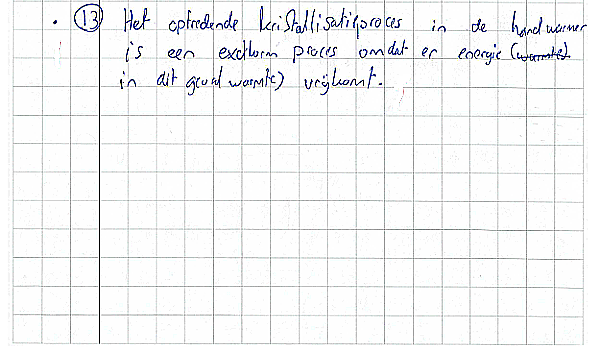 13 Het optredende kristallisatieproces in de handwarmer
is een exotherm proces omdat er energie (warmte)
in dit geval warmte) vrijkomt.